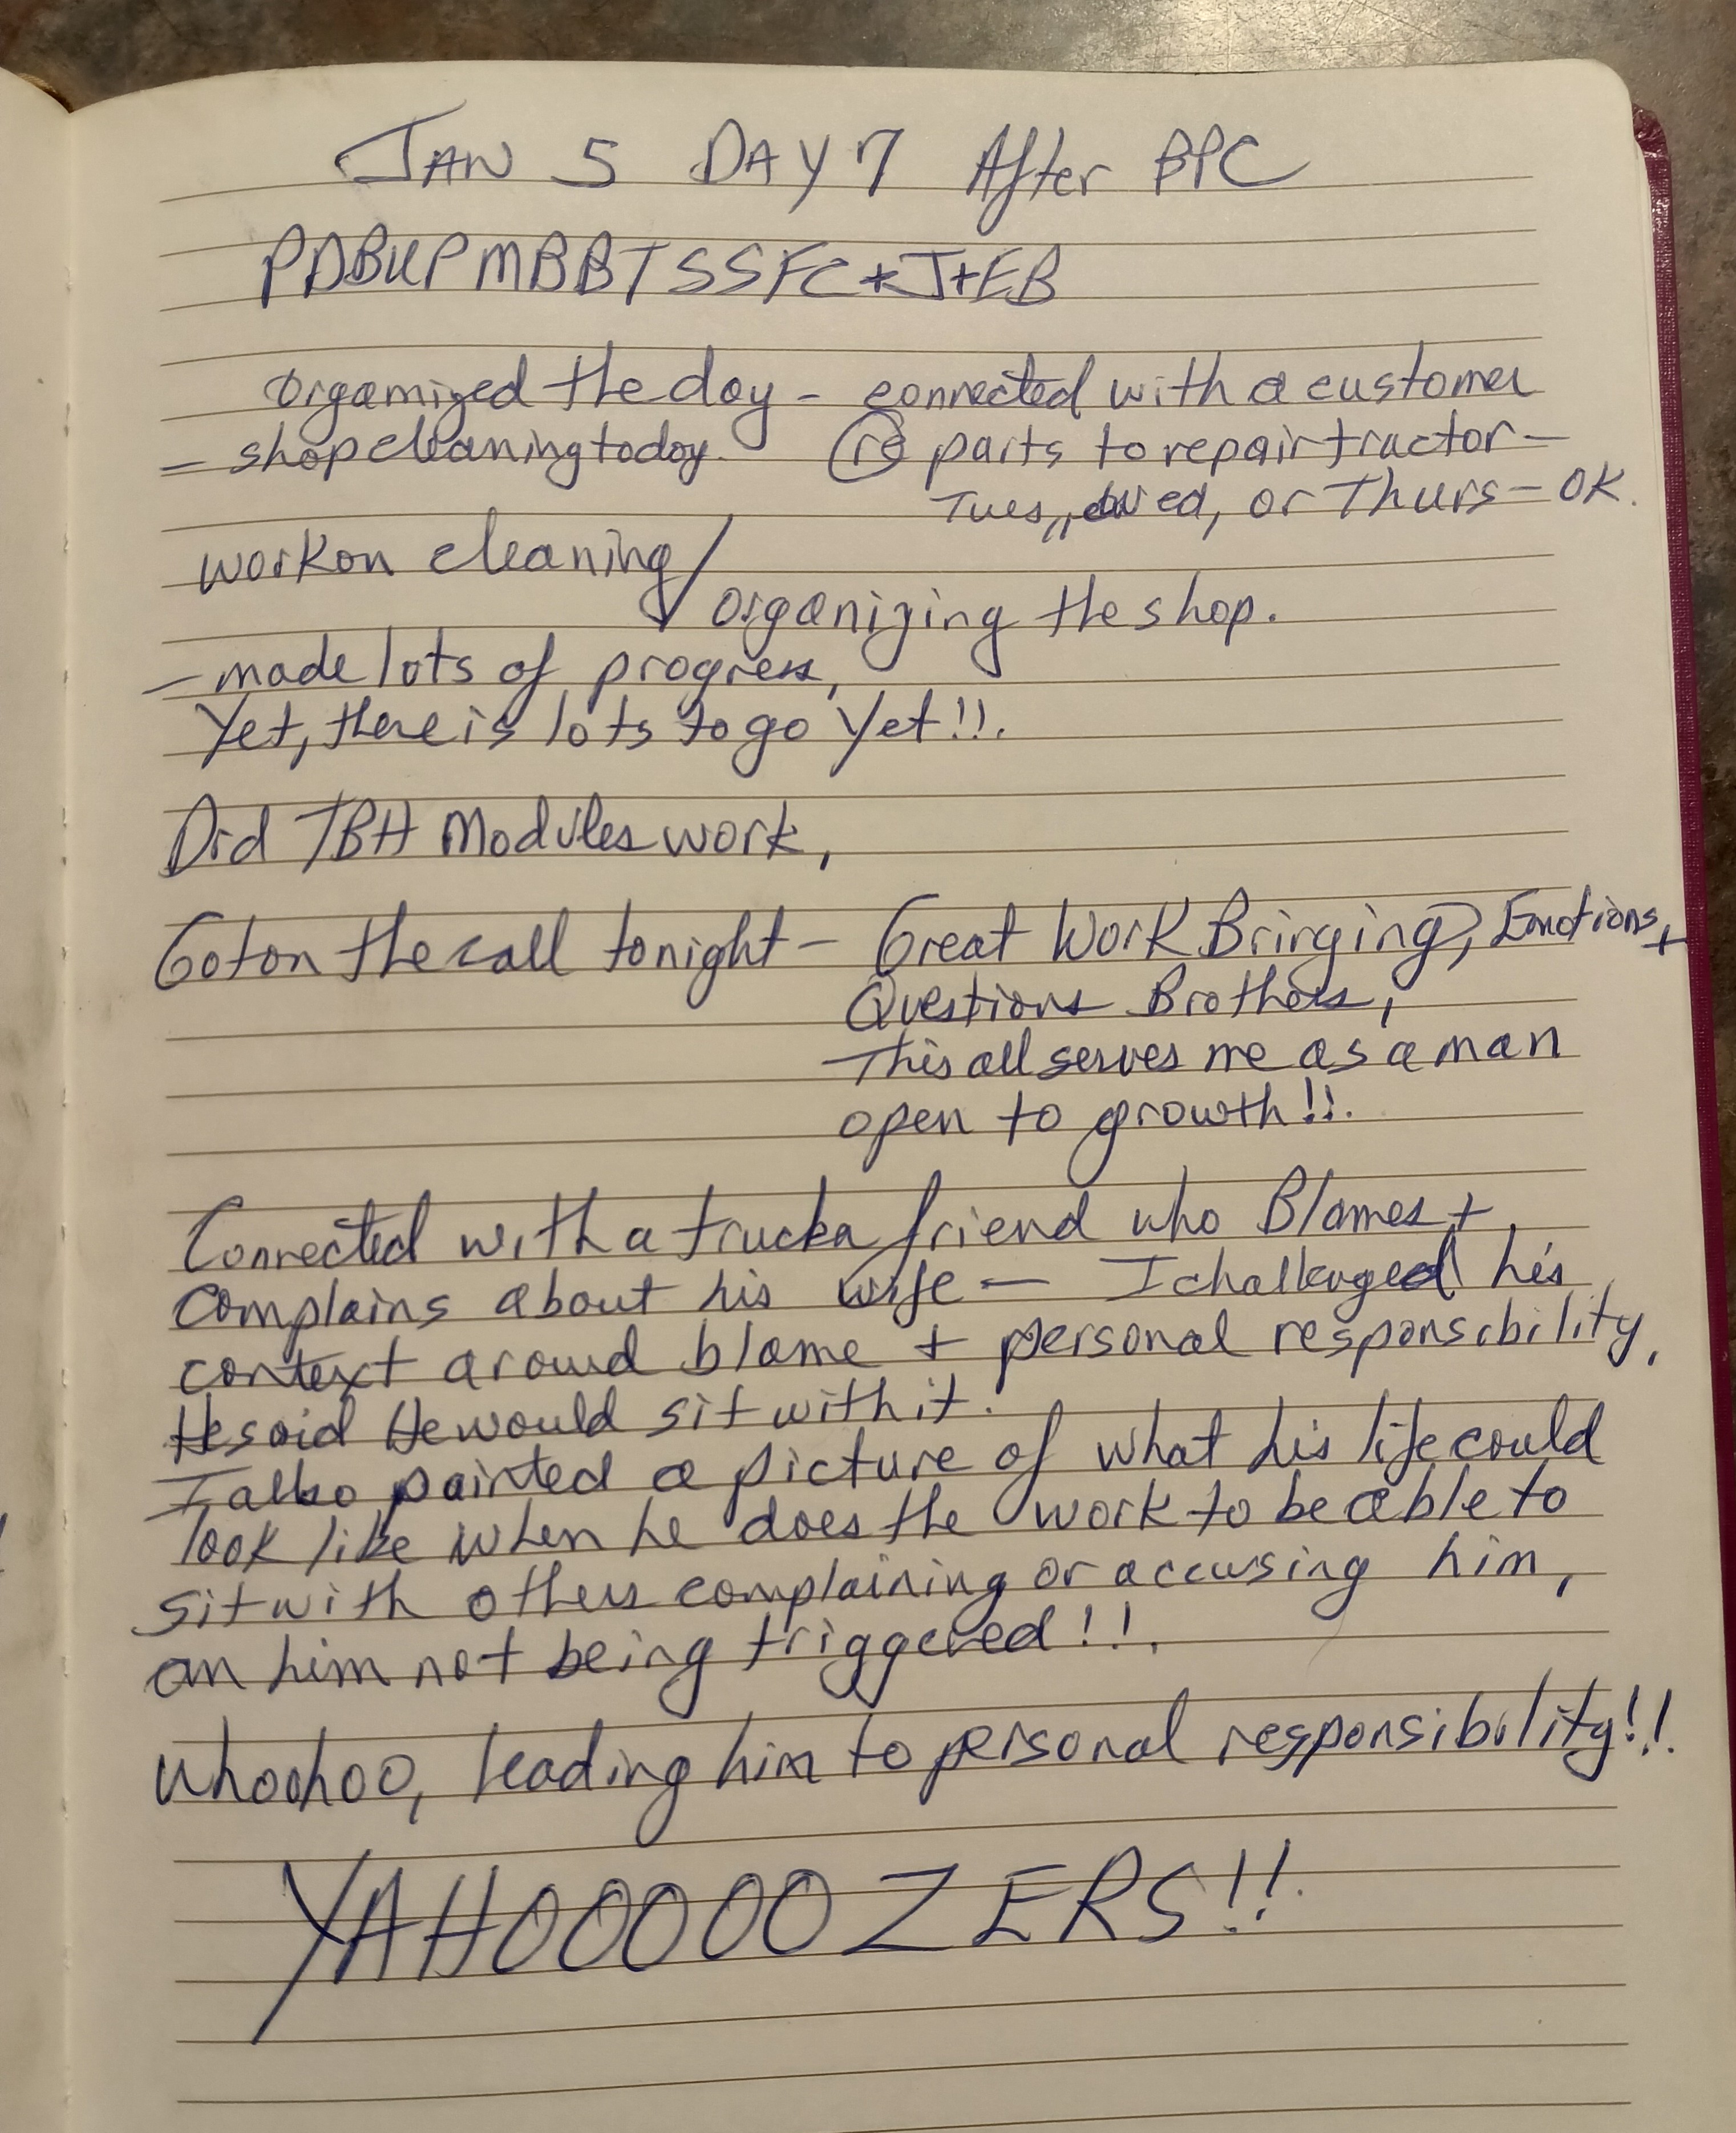 JAN 5 DAY 7 After BPC
PDBUPMBBTSSFC*J+EB
Organized the day - connected with a customer
= shop cleaning today. (re) parts to repair tractor -
Tues,, wed, or Thurs - OK.
work on cleaning/
organizing the shop.
- made lots of progress,
Yet, there is lots to go Yet!!.
Did TBH Modules work,
Got on the call tonight - Great Work Bringing, Emotions, +
Questions Brothers,
This all serves me as a man
open to growth!!.
Connected with a trucka friend who Blames +
complains about his wife - I challenged his
context around blame + personal responsibility,
He said He would sit with it.
I also painted a picture of what his life could
look like when he does the work to be able to
sit with others complaining or accusing him,
an him not being triggered!!.
Whoohoo, leading him to personal responsibility!!.
YAHOOOOO ZERS!!.